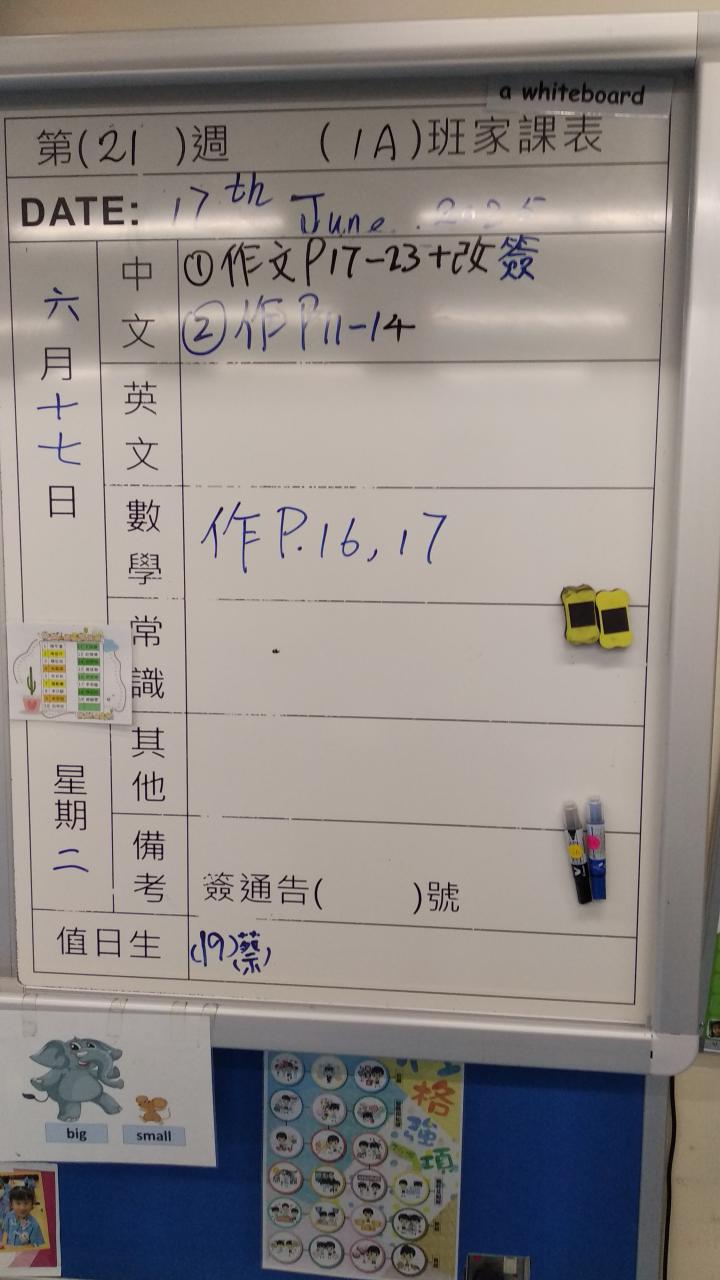 a whiteboard
第(21 )週 (1A)班家課表
DATE: 17th June 2025
六月十七日
星期二
中文
①作文P17-23+改簽
②作P11-14
英文
數學
作P.16,17
常識
其他
備考
簽通告( )號
值日生
(19)蔡
big
small
格
強
項